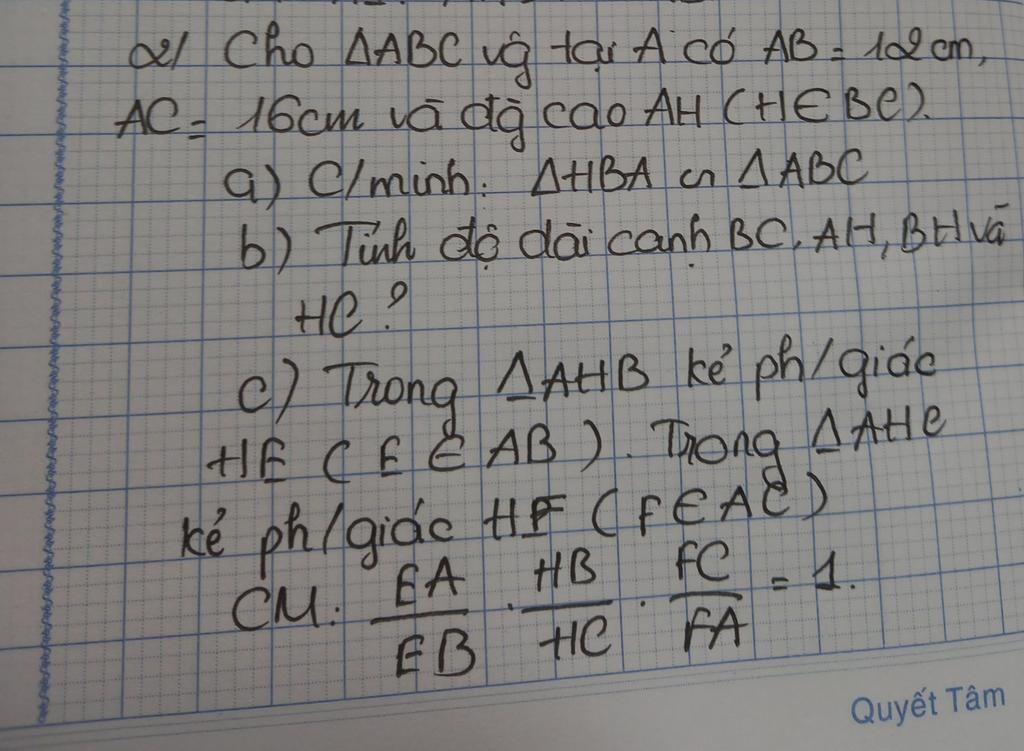 2/ Cho ΔABC vg̀ tại A có AB = 12cm,
AC = 16cm và đg̀ cao AH (H∈BC).
a) C/minh: ΔHBA ∽ ΔABC
b) Tính độ dài cạnh BC, AH, BH và
HC?
c) Trong ΔAHB kẻ ph/giác
HE (E ∈ AB). Trong ΔAHC
kẻ ph/giác HF (F∈AC)
CM: EA/EB . HB/HC . FC/FA = 1.
Quyết Tâm